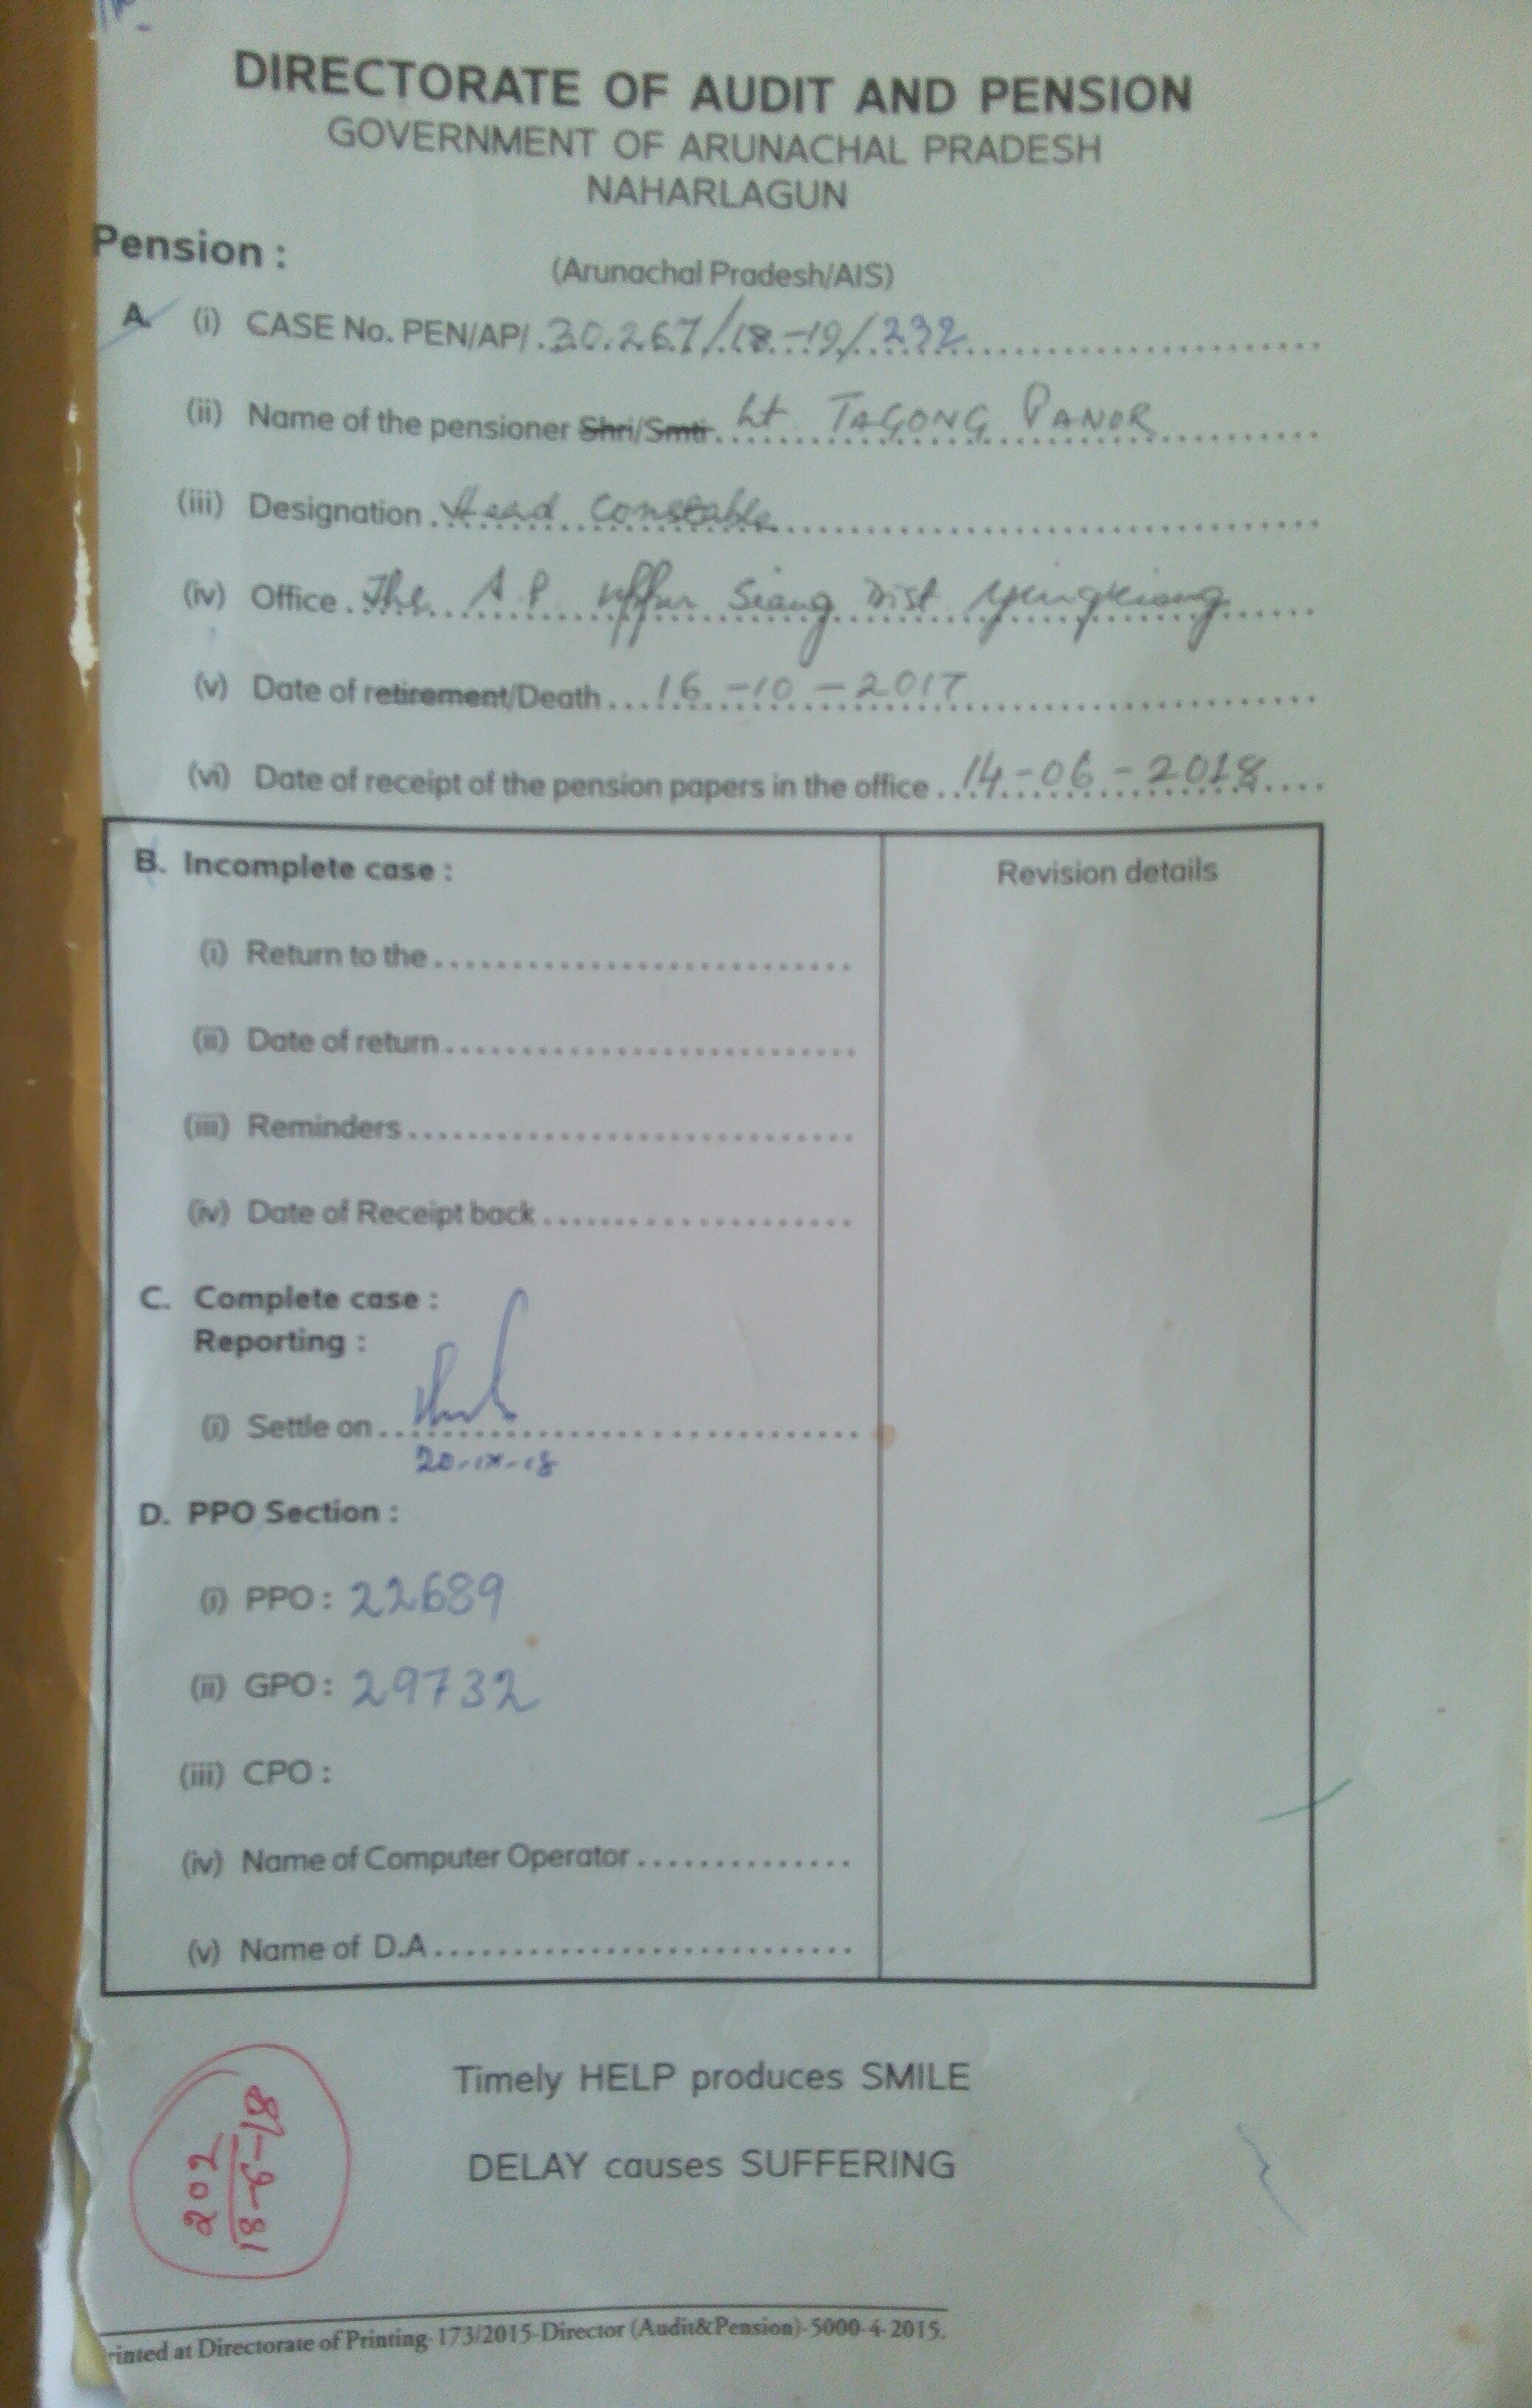 DIRECTORATE OF AUDIT AND PENSION
GOVERNMENT OF ARUNACHAL PRADESH
NAHARLAGUN
Pension :
(Arunachal Pradesh/AIS)
A (i) CASE No. PEN/AP/.30.267/18-19/232
(ii) Name of the pensioner Shri/Smti Lt TAGONG PANOR
(iii) Designation Head Constable
(iv) Office The S.P Upper Siang Dist Yingkiong
(v) Date of retirement/Death 16-10-2017
(vi) Date of receipt of the pension papers in the office 14-06-2018
B. Incomplete case :
Revision details
(i) Return to the
(ii) Date of return
(iii) Reminders
(iv) Date of Receipt back
C. Complete case :
Reporting :
(i) Settle on
20-IX-18
D. PPO Section :
(i) PPO : 22689
(ii) GPO : 29732
(iii) CPO :
(iv) Name of Computer Operator
(v) Name of D.A
202
18-6-18
Timely HELP produces SMILE
DELAY causes SUFFERING
rinted at Directorate of Printing-173/2015-Director (Audit&Pension)-5000-4-2015.